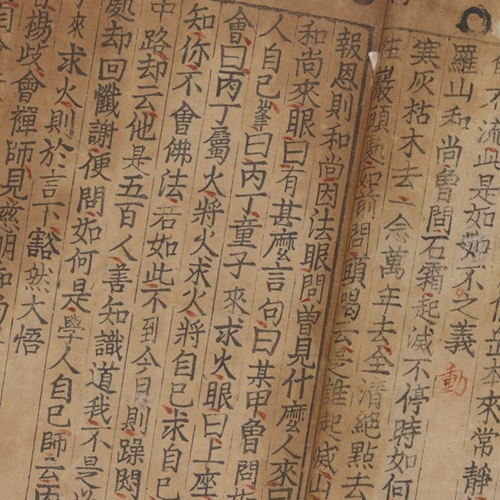 本來常靜
不演此是如如不之義
動
羅山和尚曾問石霜起滅不停時如何
寒灰枯木去一念萬年去全清絕點去
巖頭處如前問頭喝云是誰起滅山
報恩則和尚因法眼問曾見什麼人來曰
和尚來眼曰有甚麼言句曰某甲曾問
人自己峯曰丙丁童子來求火眼曰上座
會曰丙丁屬火將火求火將自己求自己
知你不會佛法若如此不到今日則躁悶
中路却云他是五百人善知識道我不是
處却回懺謝便問如何是學人自己師云丙
來求火則於言下豁然大悟
楊歧會禪師見慈明